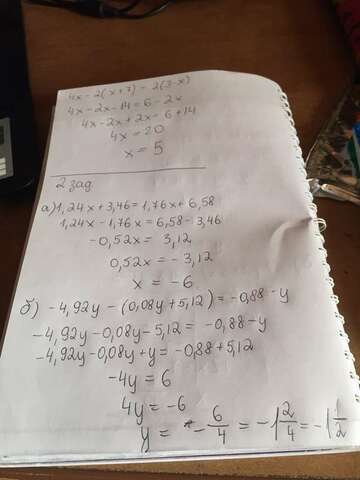 4x - 2(x+7) = 2(3-x)
4x - 2x - 14 = 6 - 2x
4x - 2x + 2x = 6 + 14
4x = 20
x = 5
2 зад.
а) 1,24x + 3,46 = 1,76x + 6,58
1,24x - 1,76x = 6,58 - 3,46
-0,52x = 3,12
0,52x = -3,12
x = -6
б) -4,92y - (0,08y + 5,12) = -0,88 - y
-4,92y - 0,08y - 5,12 = -0,88 - y
-4,92y - 0,08y + y = -0,88 + 5,12
-4y = 6
4y = -6
y = - 6/4 = -1 2/4 = -1 1/2